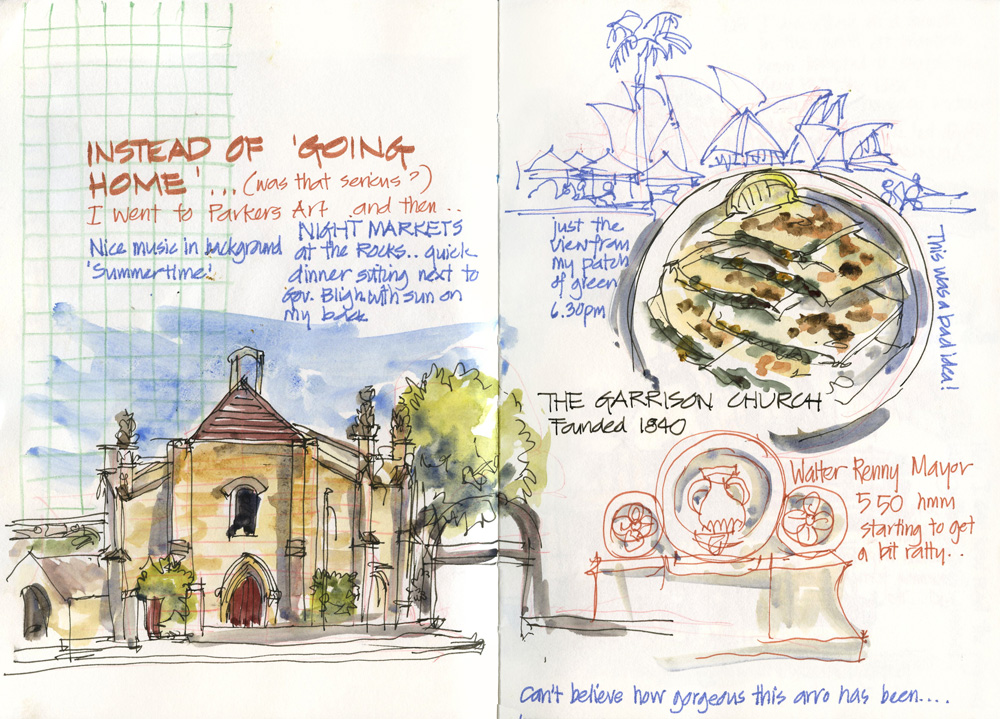 INSTEAD OF 'GOING
HOME'... (was that serious?)
I went to Parkers Art and then...
Nice music in background
'Summertime'.
NIGHT MARKETS
at the ROCKS.. quick
dinner sitting next to
Gov. Bligh with sun on
my back
just the
view from
my patch
of green
6.30pm
This was a bad idea!
THE GARRISON CHURCH
Founded 1840
Walter Renny Mayor
5 50 hmm
starting to get
a bit ratty..
Can't believe how gorgeous this arvo has been....